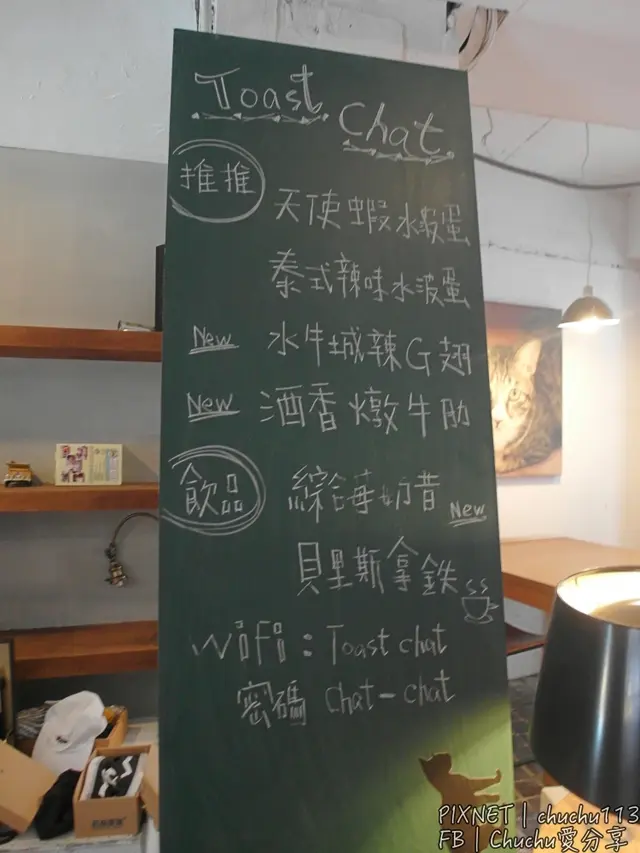 Toast
Chat
推推
天使蝦水波蛋
泰式辣味水波蛋
New 水牛城辣G翅
New 酒香燉牛肋
飲品
綜合莓奶昔 New
貝里斯拿鉄
wifi : Toast chat
密碼 Chat-chat
PIXNET | chuchu113
FB | Chuchu愛分享